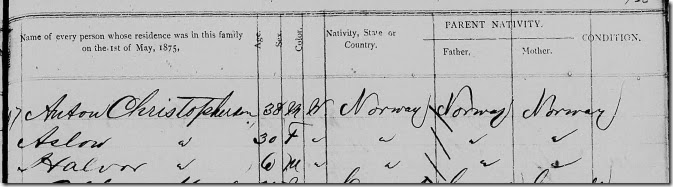 Name of every person whose residence was in this family on the 1st of May, 1875, Age. Sex. Color. Nativity, State or Country. PARENT NATIVITY. Father. Mother. CONDITION.
17 Anton Christopherson 38 M W Norway Norway Norway
Aslow " 30 F " " " "
Halvor " 6 M " " " "